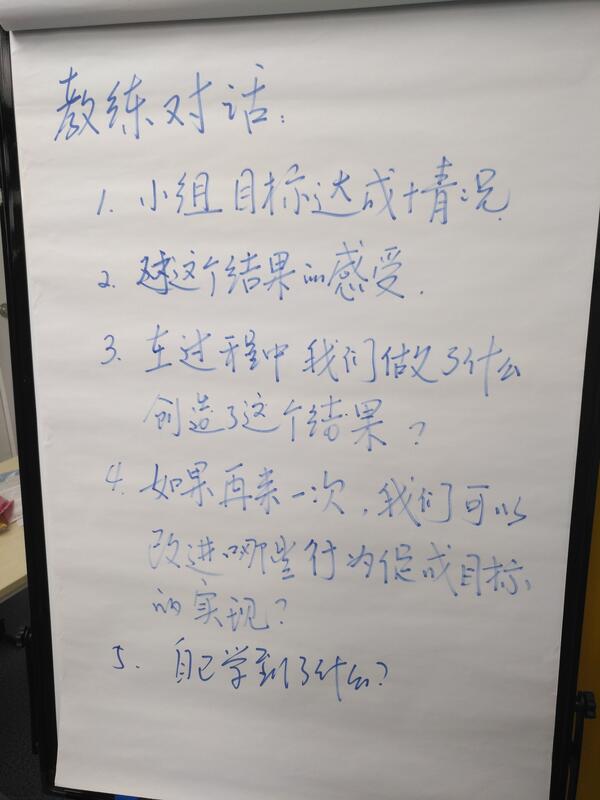 教练对话:
1. 小组目标达成情况.
2. 对这个结果的感受.
3. 在过程中我们做了什么
创造了这个结果?
4. 如果再来一次,我们可以
改进哪些行为促成目标
的实现?
5. 自己学到了什么?